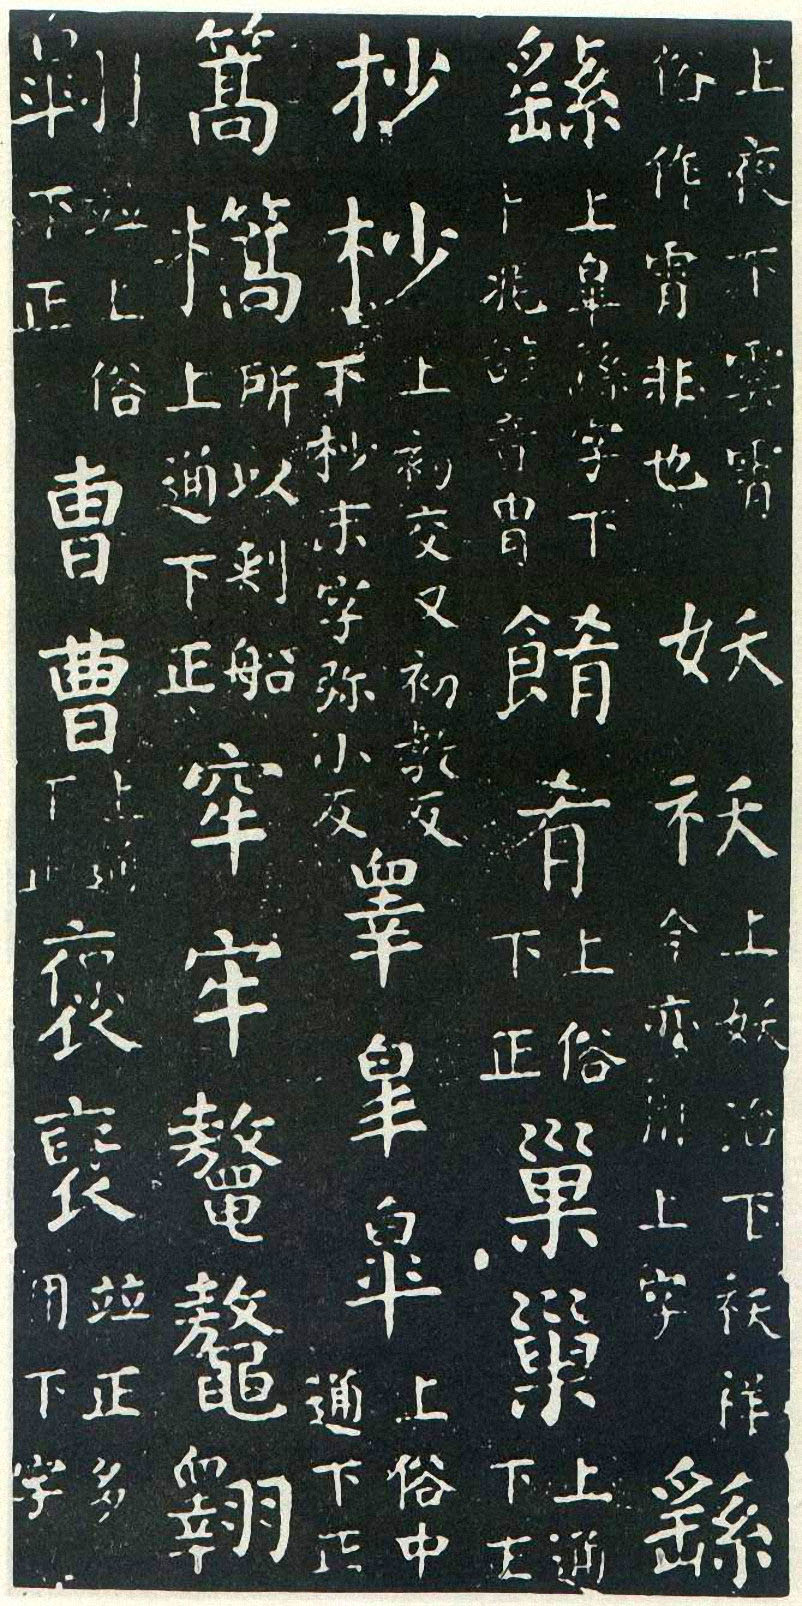 上夜下雲霄俗作霄非也妖祅上妖冶下祅祥今亦用上字繇
繇上皐繇字下卜兆辭音冑餚肴上俗下正巢巢上通下正
抄杪上初交又初教反下杪末字弥小反睾皋皐上俗中通下正
篙檇所以刺船上通下正窂牢鼇鼇翺
翺並上俗下正曺曹上通下正褒裦並正多用下字